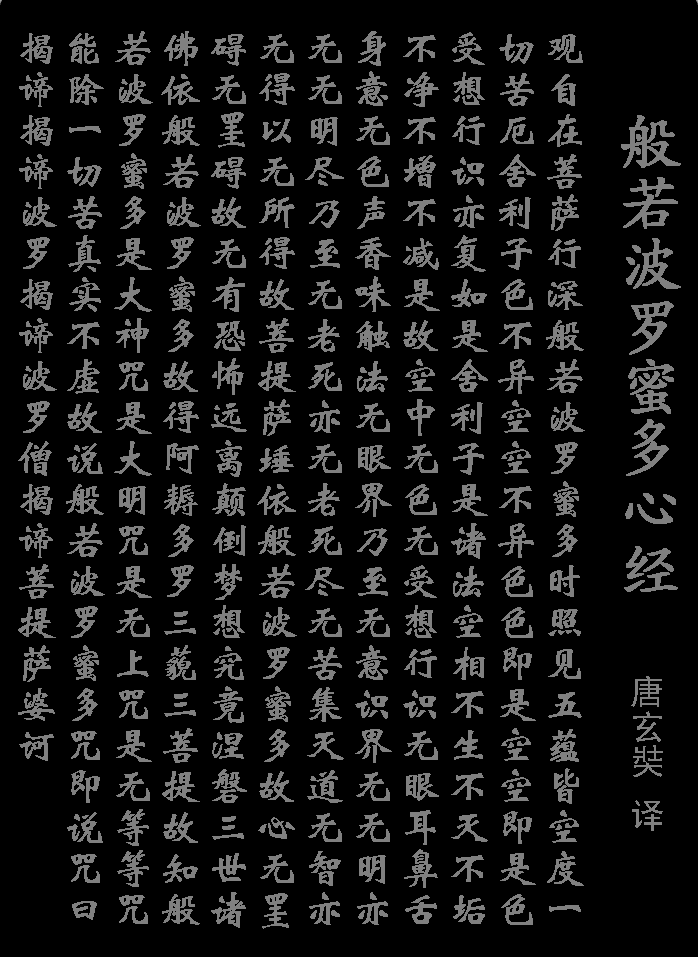 般若波罗蜜多心经
唐玄奘 译
观自在菩萨行深般若波罗蜜多时照见五蕴皆空度一
切苦厄舍利子色不异空空不异色色即是空空即是色
受想行识亦复如是舍利子是诸法空相不生不灭不垢
不净不增不减是故空中无色无受想行识无眼耳鼻舌
身意无色声香味触法无眼界乃至无意识界无无明亦
无无明尽乃至无老死亦无老死尽无苦集灭道无智亦
无得以无所得故菩提萨埵依般若波罗蜜多故心无罣
碍无罣碍故无有恐怖远离颠倒梦想究竟涅磐三世诸
佛依般若波罗蜜多故得阿耨多罗三藐三菩提故知般
若波罗蜜多是大神咒是大明咒是无上咒是无等等咒
能除一切苦真实不虚故说般若波罗蜜多咒即说咒曰
揭谛揭谛波罗揭谛波罗僧揭谛菩提萨婆诃